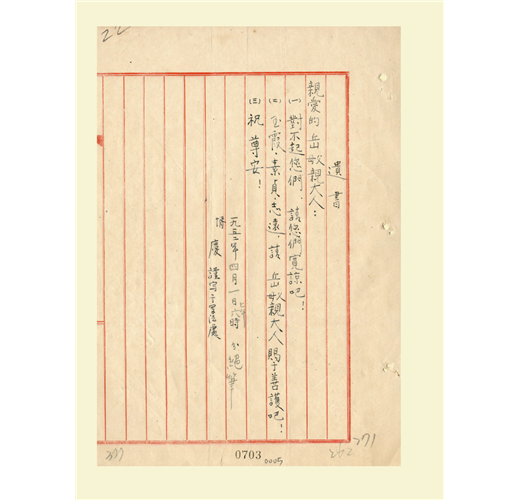 遺書
親愛的岳母親大人：
(一) 對不起您們，請您們寬諒吧！
(七) 玉霞、素貞、志遠，請 岳母親大人賜予善護吧！
(三) 祝 尊安！
一九五二年四月一日 六時 分絕筆
婿 慶 謹寫于軍法處
0703
0005
271
262